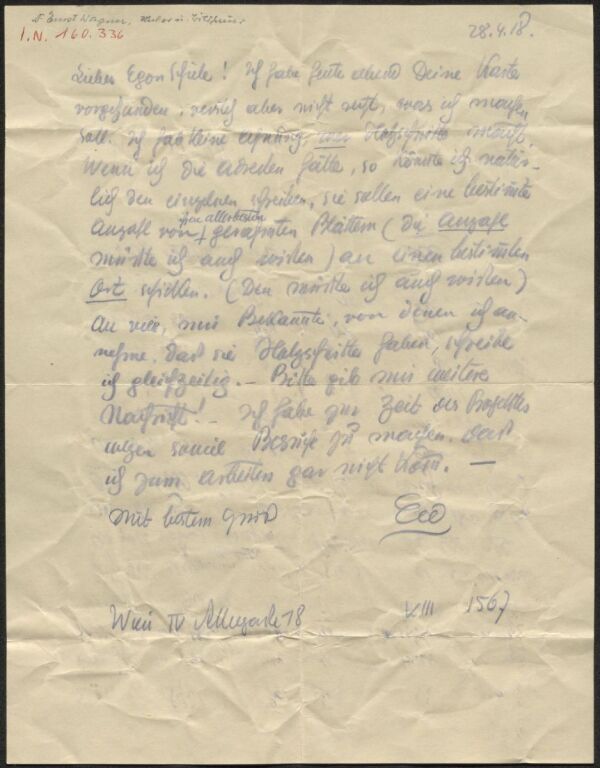 Ernst Wagner, Maler u. Bildhauer
I.N. 160.336
28.4.18.
Lieber Egon Schiele! Ich habe heute abend Deine Karte
vorgefunden, weiß aber nicht recht, was ich machen
soll. Ich hab keine Ahnung wer Holzschnitte macht.
Wenn ich die Adressen hätte, so könnte ich natür-
lich den einzelnen schreiben, sie sollen eine bestimmte
Anzahl von ihren allerbesten Blättern (die Anzahl
müßte ich auch wissen) an einen bestimmten
Ort schicken. (Den müßte ich auch wissen)
An vier, mir Bekannte, von denen ich an-
nehme, daß sie Holzschnitte haben, schreibe
ich gleichzeitig. – Bitte gib mir weitere
Nachricht! – Ich habe zur Zeit des Projektes
wegen soviel Besuche zu machen, daß
ich zum arbeiten gar nicht komm. —
Mit bestem Gruß
Wien IV 18
VIII 1567